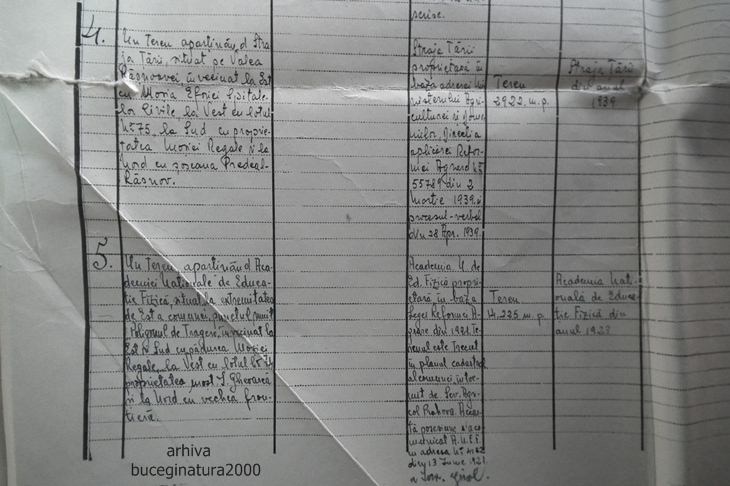 scrise.
4.
Un Teren aparținând Stra
ja Țării, situat pe Valea
Râșnoavei învecinat la Est
cu Moșia Eforiei Spitale-
lor Civile, la Vest cu lotul
No 75, la Sud cu proprie-
tatea Moșiei Regale și la
Nord cu șoseaua Predeal-
Râșnov.
Straja Țării
proprietară în
baza adresei Mi
nisterului Agri-
culturei și Dome
niilor, Direcția
aplicărei Refor-
mei Agrare No
55789 din 2
Martie 1939 și
procesul-verbal
din 28 Apr. 1939.
Teren
2922 m.p.
Straja Țării
din anul
1939
5.
Un Teren, aparținând Aca-
demiei Naționale de Educa-
ție Fizică, situat la extremitatea
de Est a comunei, punctul numit
Poligonul de Tragere, învecinat la
Est și Sud cu pădurea Moșiei
Regale, la Vest cu lotul No 74
proprietatea moșt. I. Gherască
și la Nord cu vechea fron-
tieră.
Academia N. de
Ed. Fizică propri-
etară în baza
Legei Reforma A-
grare din 1921. Te-
renul este trecut
în planul cadastral
al comunei, întoc-
mit de Serv. Agri-
col Prahova. Aceas-
tă posesiune s'a co-
municat A.N.E.F.
cu adresa No
din 13 Iunie 1921
a
Teren
4.225 m.p.
Academia Nați-
onală de Educa-
ție Fizică din
anul 1923
arhiva
buceginatura2000